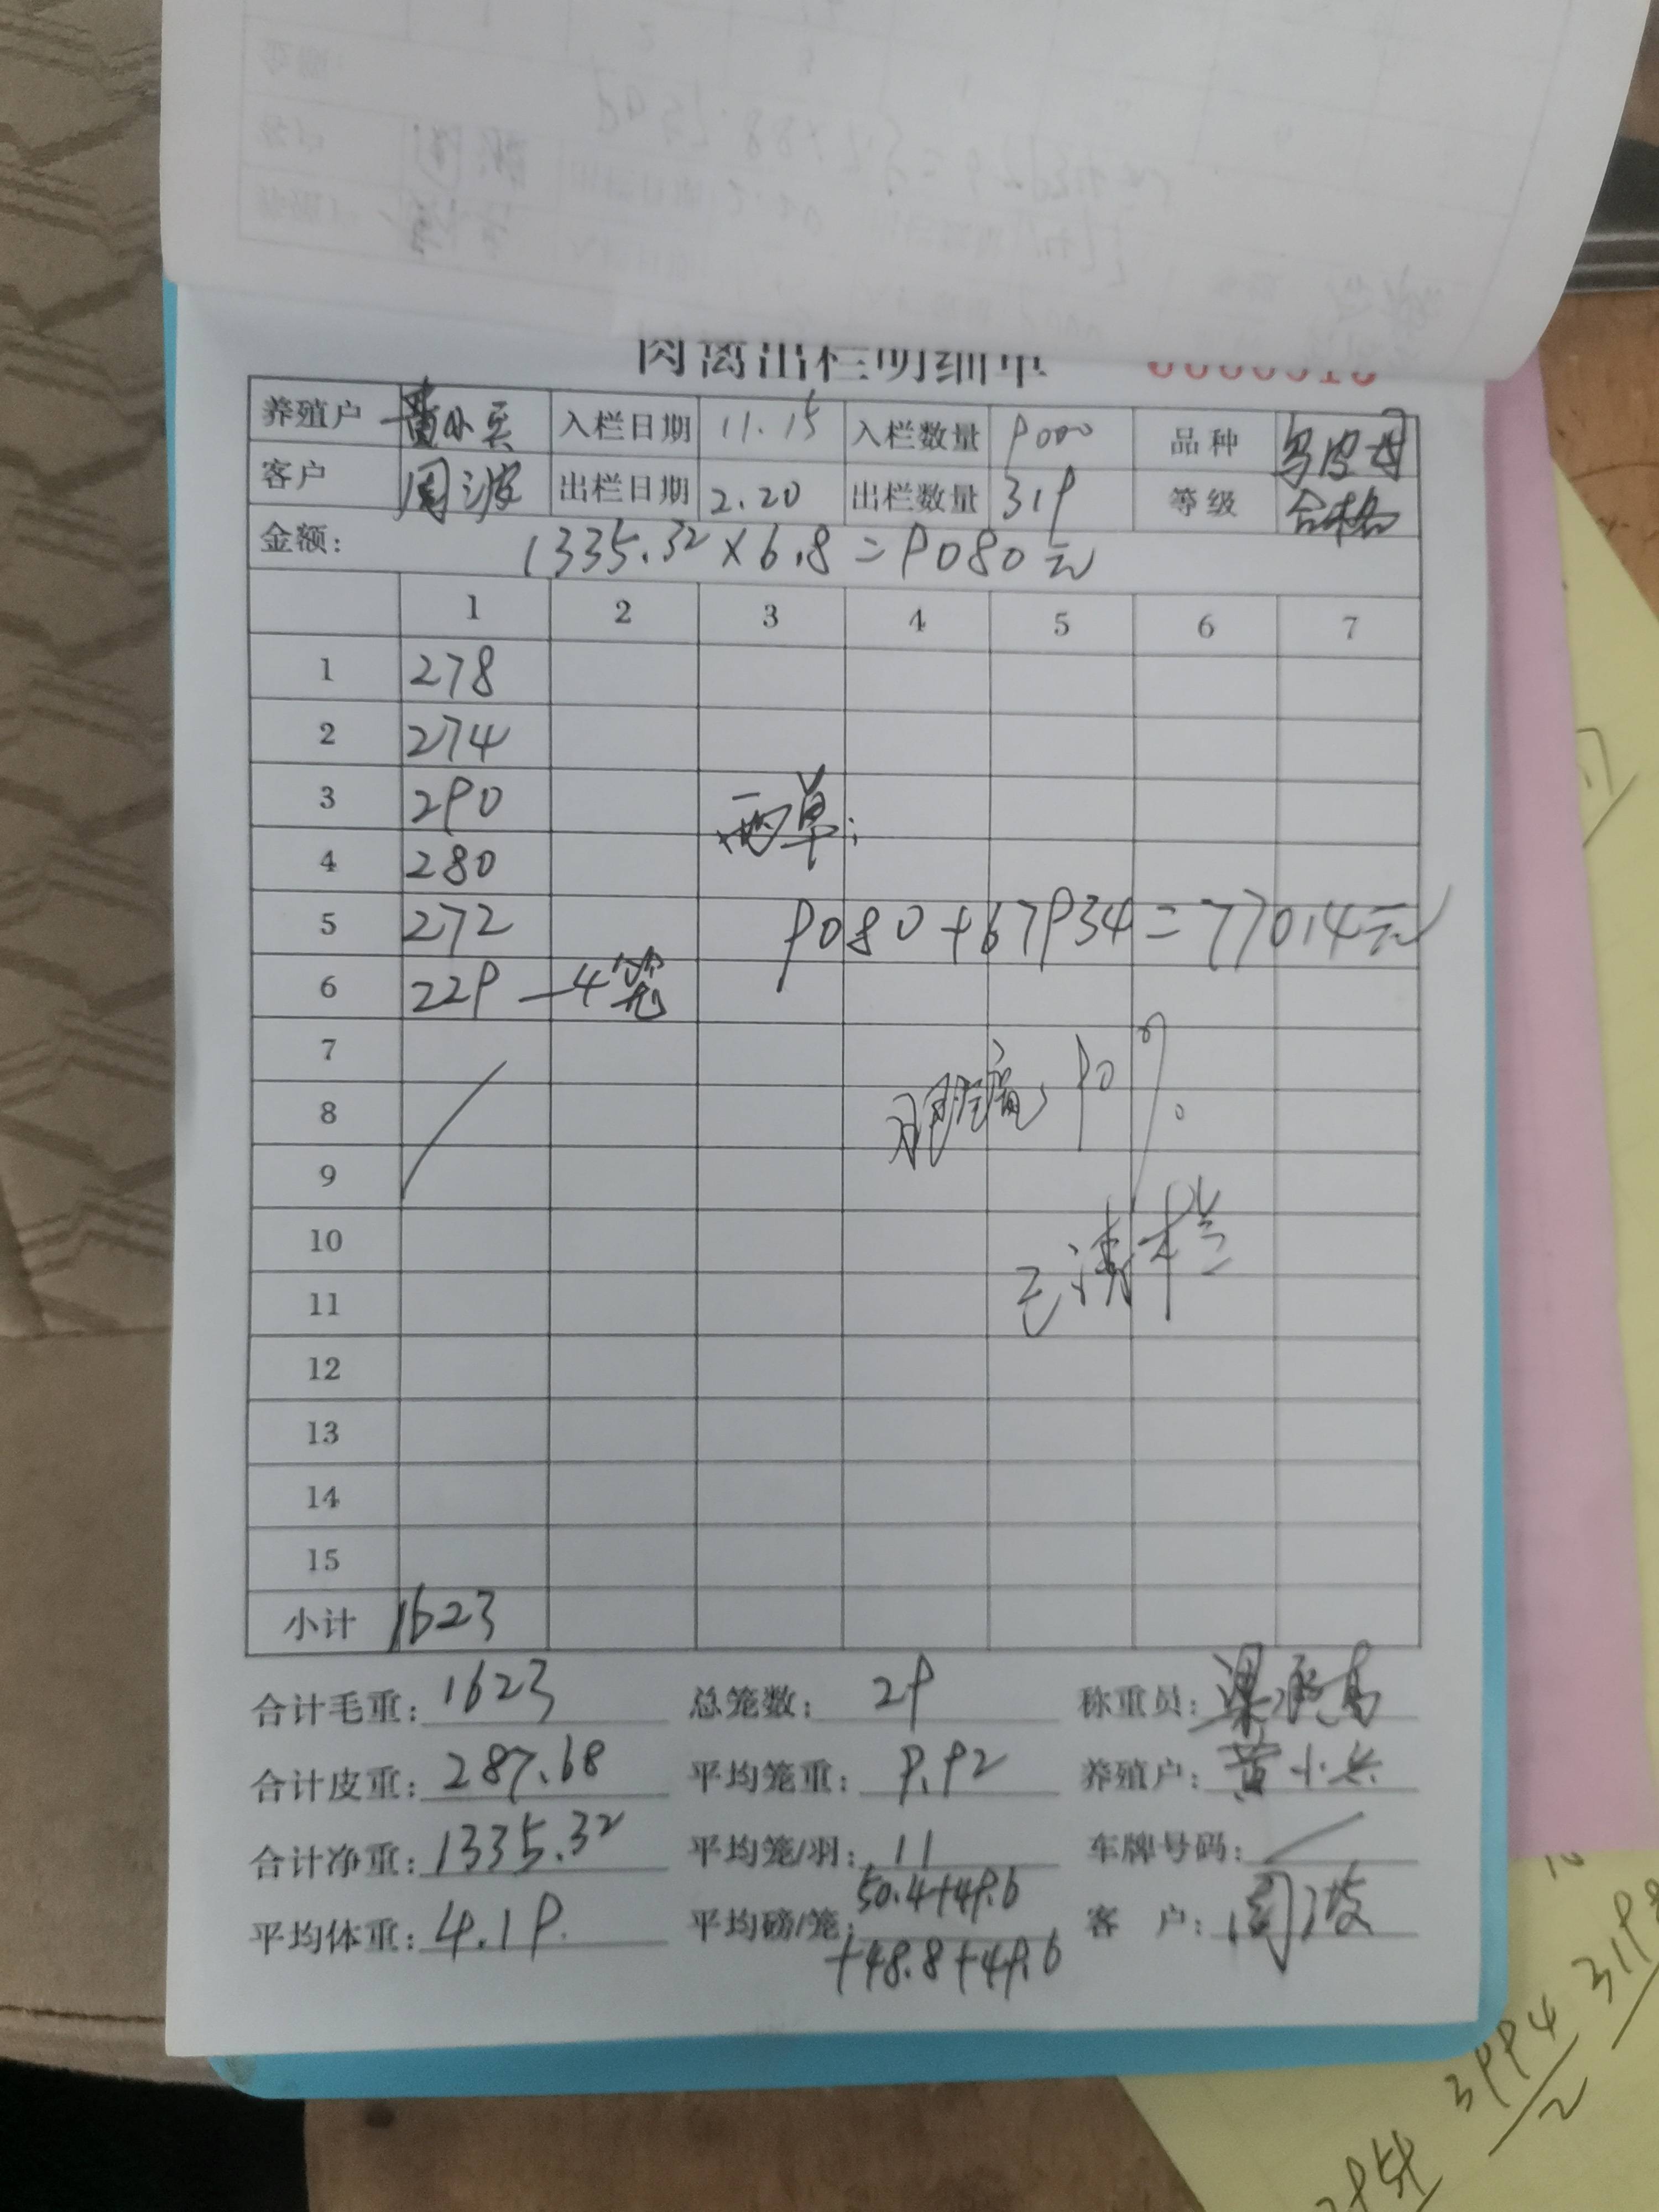 肉禽出栏明细单
养殖户 黄小兵 入栏日期 11.15 入栏数量 9000 品种 乌皮母
客户 周波 出栏日期 2.20 出栏数量 319 等级 合格
金额: 1335.32×6.8=9080元
1 2 3 4 5 6 7
1 278
2 274
3 290 两单:
4 280
5 272 9080+67934=77014元
6 229 —4笼
7
8 90%
9
10 已清栏
11
12
13
14
15
小计 1623
合计毛重: 1623 总笼数: 29 称重员:
合计皮重: 287.68 平均笼重: 9.92 养殖户: 黄小兵
合计净重: 1335.32 平均笼/羽: 11 车牌号码:
平均体重: 4.19 平均磅/笼: 50.4+49.6 客 户: 周波
+48.8+49.6
3994
2